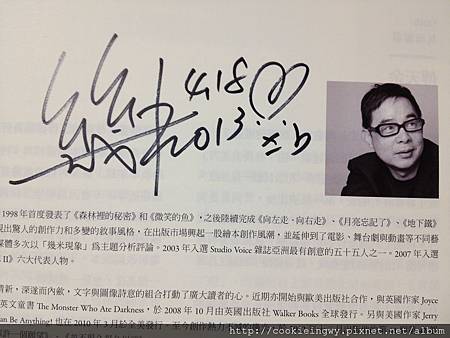 幾米
4.18
2013
1998年首度發表了《森林裡的秘密》和《微笑的魚》,之後陸續完成《向左走‧向右走》、《月亮忘記了》、《地下鐵》
現出驚人的創作力和多變的敘事風格,在出版市場興起一股繪本創作風潮,並延伸到了電影、舞台劇與動畫等不同藝
媒體多次以「幾米現象」為主題分析評論。2003年入選 Studio Voice 雜誌亞洲最有創意的五十五人之一。2007年入選
II》六大代表人物。
清新,深邃而內歛,文字與圖像詩意的組合打動了廣大讀者的心。近期亦開始與歐美出版社合作,與英國作家 Joyce
英文童書 The Monster Who Ate Darkness,於2008年10月由英國出版社 Walker Books 全球發行。另與美國作家 Jerry
an Be Anything! 也在2010年3月於全美發行,至今創作熱力不
http://cookieingwy.pixnet.net/album